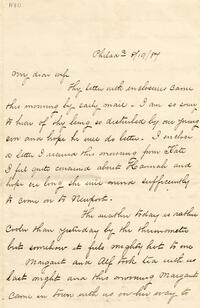 Philada 8/10/87
My dear wife
Thy letter with enclosures came
this morning by early mail - I am so sorry
to hear of thy being so disturbed by our young
son and hope he will do better. I enclose
a letter I received this morning from Kate
I feel quite concerned about Hannah and
hope ere long she will mend sufficiently
to come on to Newport.
The weather today is rather
cooler than yesterday by the thermometer
but somehow it feels mighty hot to me
Margaret and Alf took tea with us
last night and this morning Margaret
came in town with us on her way to